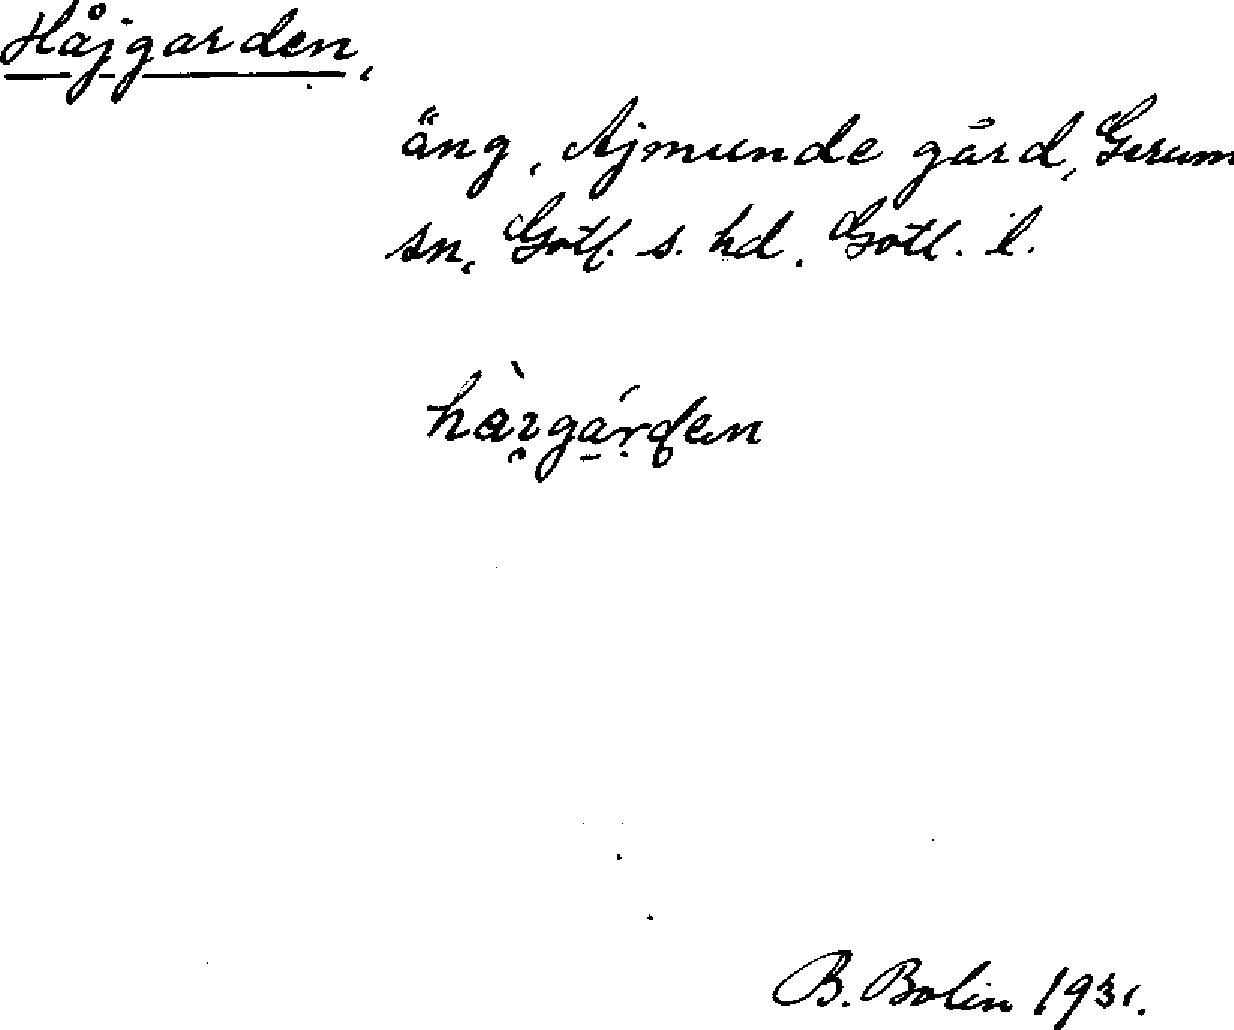 Håjgarden,
äng, Ajmunde gård, Gerum
sn, Gotl. s. hd. Gotl. l.
B. Bolin 1931.